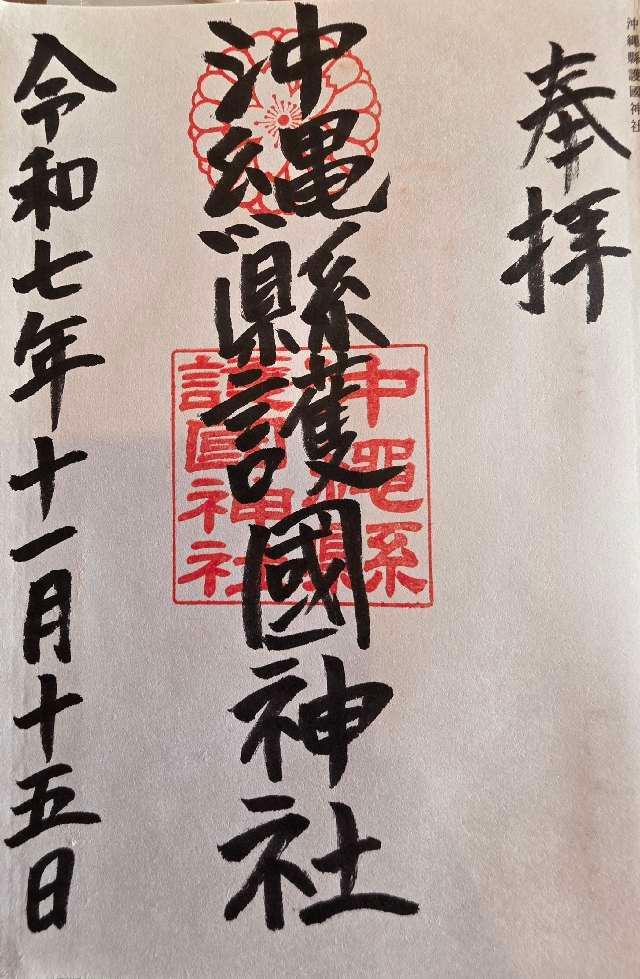 沖縄縣護國神社
奉拝
沖縄縣護國神社
沖縄縣
護國神社
令和七年十一月十五日